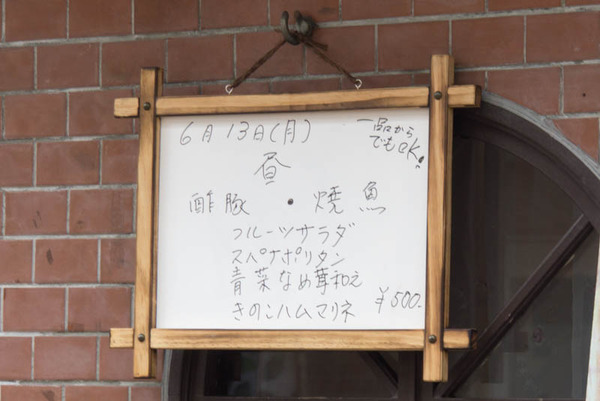 6月13日(月)
一品から
でもOK!
昼
酢豚 ・ 焼魚
フルーツサラダ
スパナポリタン
青菜なめ茸和え
きのこハムマリネ
¥500-